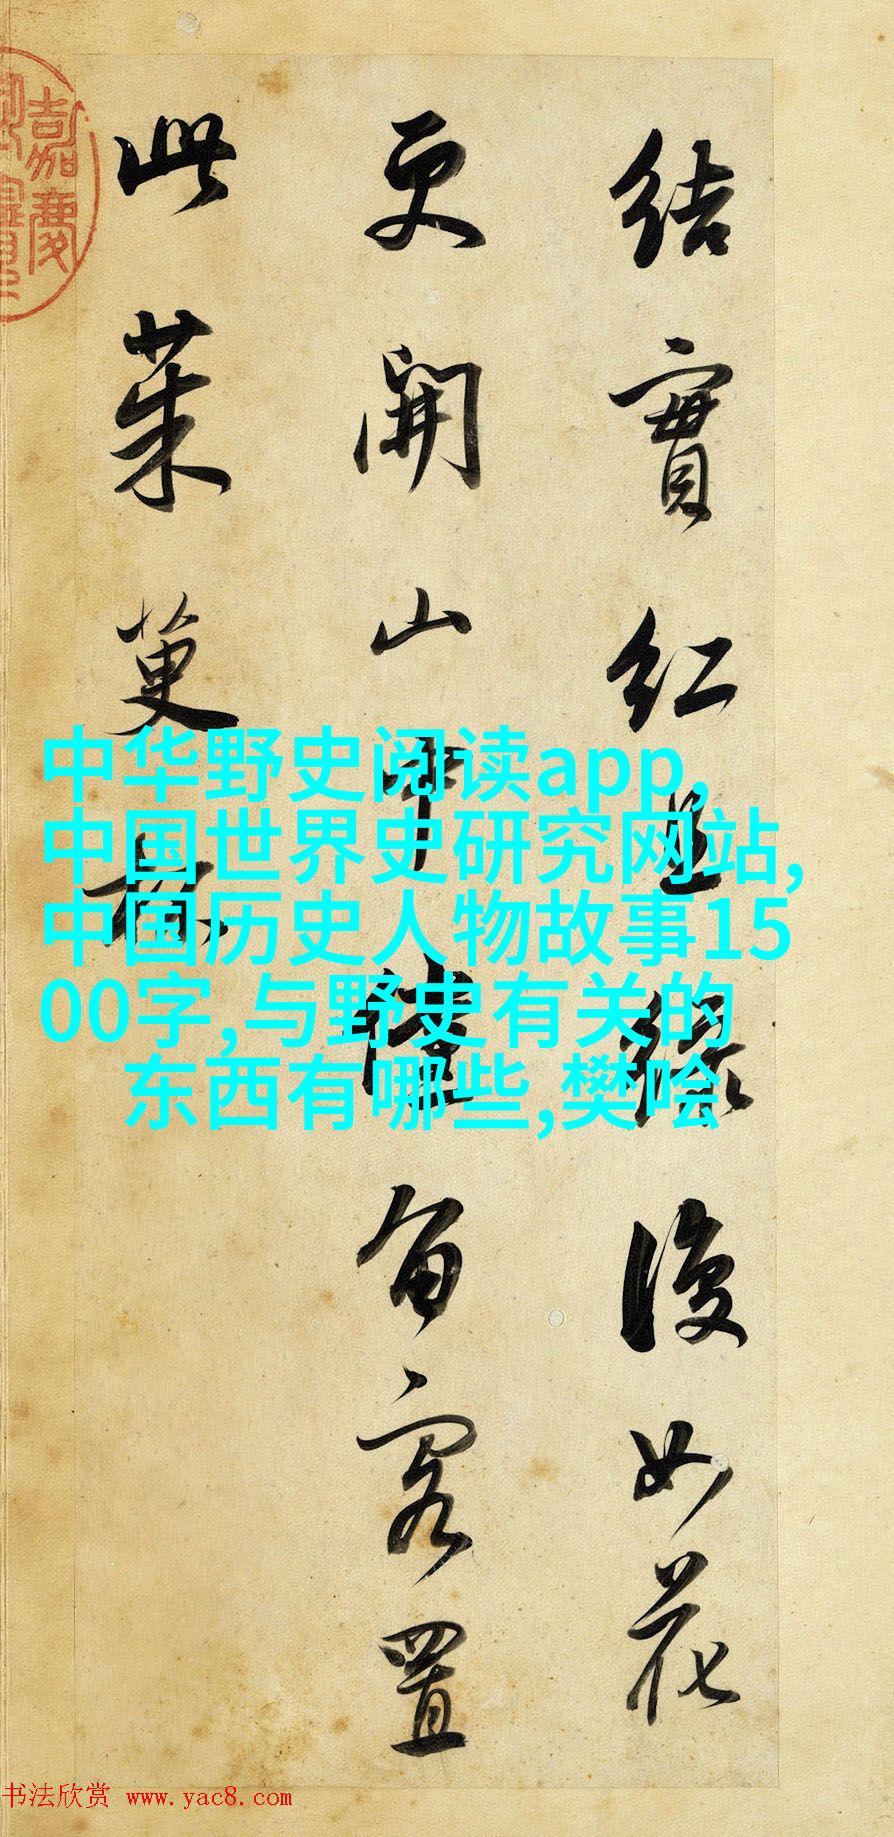 結實紅且綠復如花
更開山中儻留客置
此茱萸杯
嘉慶
中华野史阅读app,
中国世界史研究网站,
中国历史人物故事15
00字,与野史有关的
东西有哪些,樊哙
书法欣赏 www.yac8.com